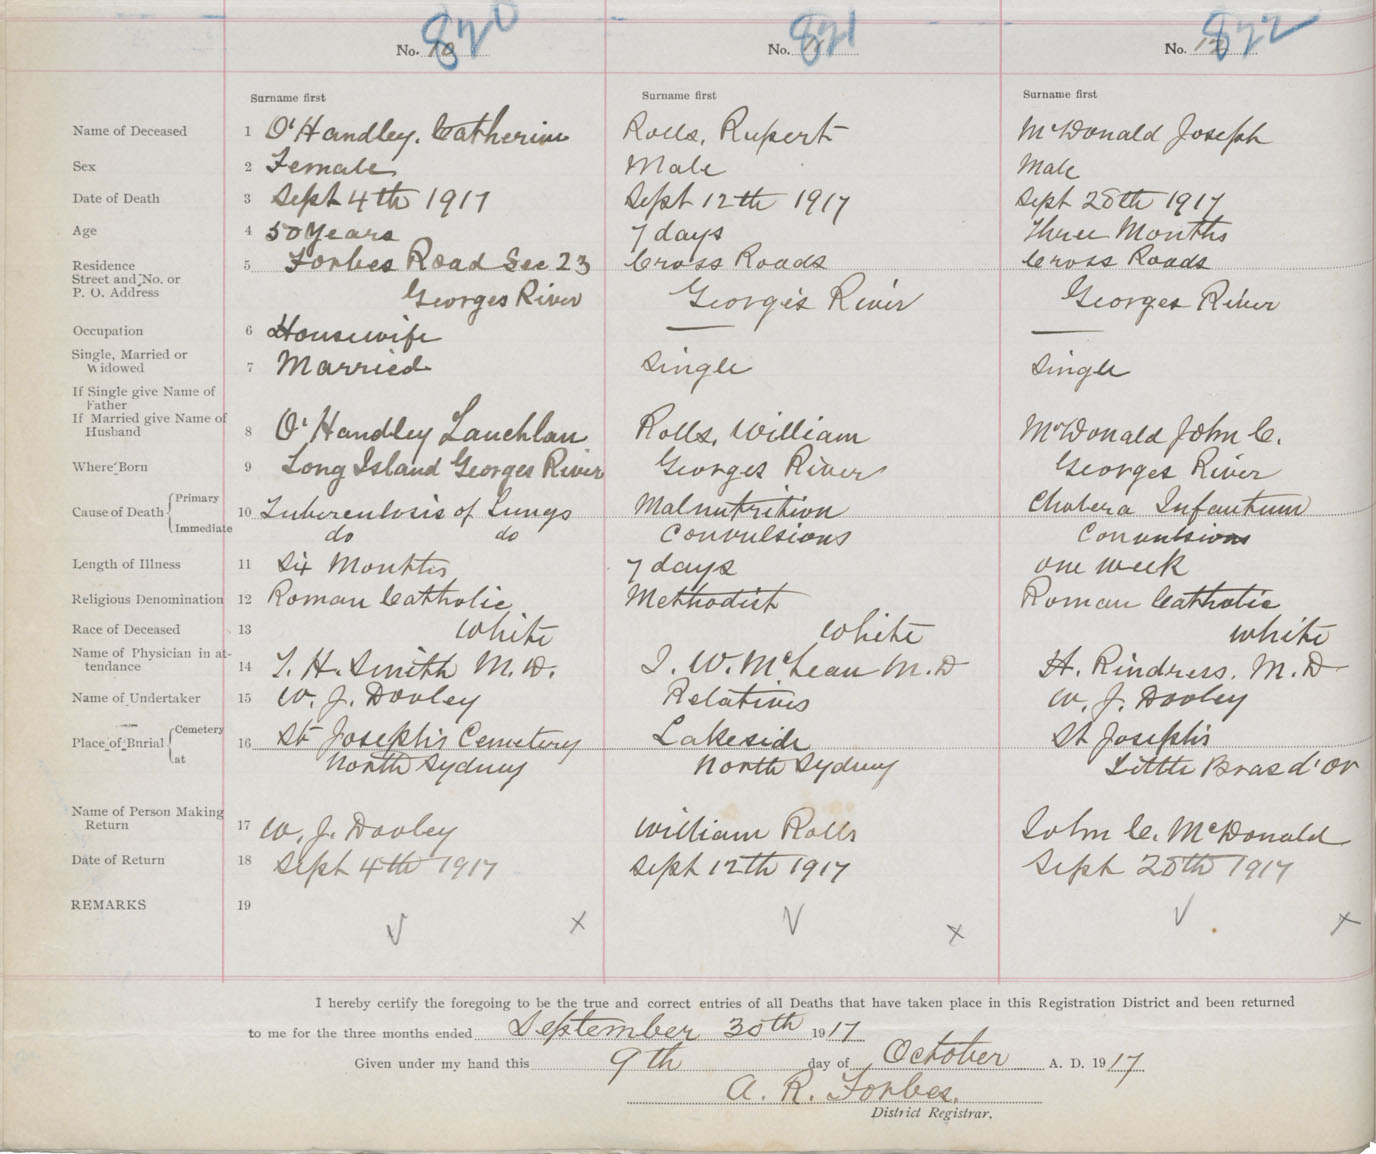 No. 10 820
No. 11 821
No. 12 822
Surname first
Surname first
Surname first
Name of Deceased 1 O'Handley, Catherine Rolls, Rupert McDonald Joseph
Sex 2 Female Male Male
Date of Death 3 Sept 4th 1917 Sept 12th 1917 Sept 28th 1917
Age 4 50 Years 7 days Three Months
Residence
Street and No. or
P. O. Address
5 Forbes Road Sec 23 Cross Roads Cross Roads
Georges River Georges River Georges River
Occupation 6 Housewife — —
Single, Married or
Widowed
7 Married Single Single
If Single give Name of
Father
If Married give Name of
Husband
8 O'Handley Lauchlan Rolls, William McDonald John C.
Where Born 9 Long Island Georges River Georges River Georges River
Cause of Death { Primary
Immediate
10 Tuberculosis of Lungs Malnutrition Cholera Infantum
do do Convulsions Convulsions
Length of Illness 11 Six Months 7 days one week
Religious Denomination 12 Roman Catholic Methodist Roman Catholic
Race of Deceased 13 White White White
Name of Physician in at-
tendance
14 L. H. Smith M.D. J. W. McLean M.D H. Rindress. M.D
Name of Undertaker 15 W. J. Dooley Relatives W. J. Dooley
Place of Burial { Cemetery
at
16 St Joseph's Cemetery Lakeside St Joseph's
North Sydney North Sydney Little Bras d'Or
Name of Person Making
Return
17 W. J. Dooley William Rolls John C. McDonald
Date of Return 18 Sept 4th 1917 Sept 12th 1917 Sept 28th 1917
REMARKS 19
√ x √ x √ x
I hereby certify the foregoing to be the true and correct entries of all Deaths that have taken place in this Registration District and been returned
to me for the three months ended September 30th 1917
Given under my hand this 9th day of October A. D. 1917
A. R. Forbes.
District Registrar.